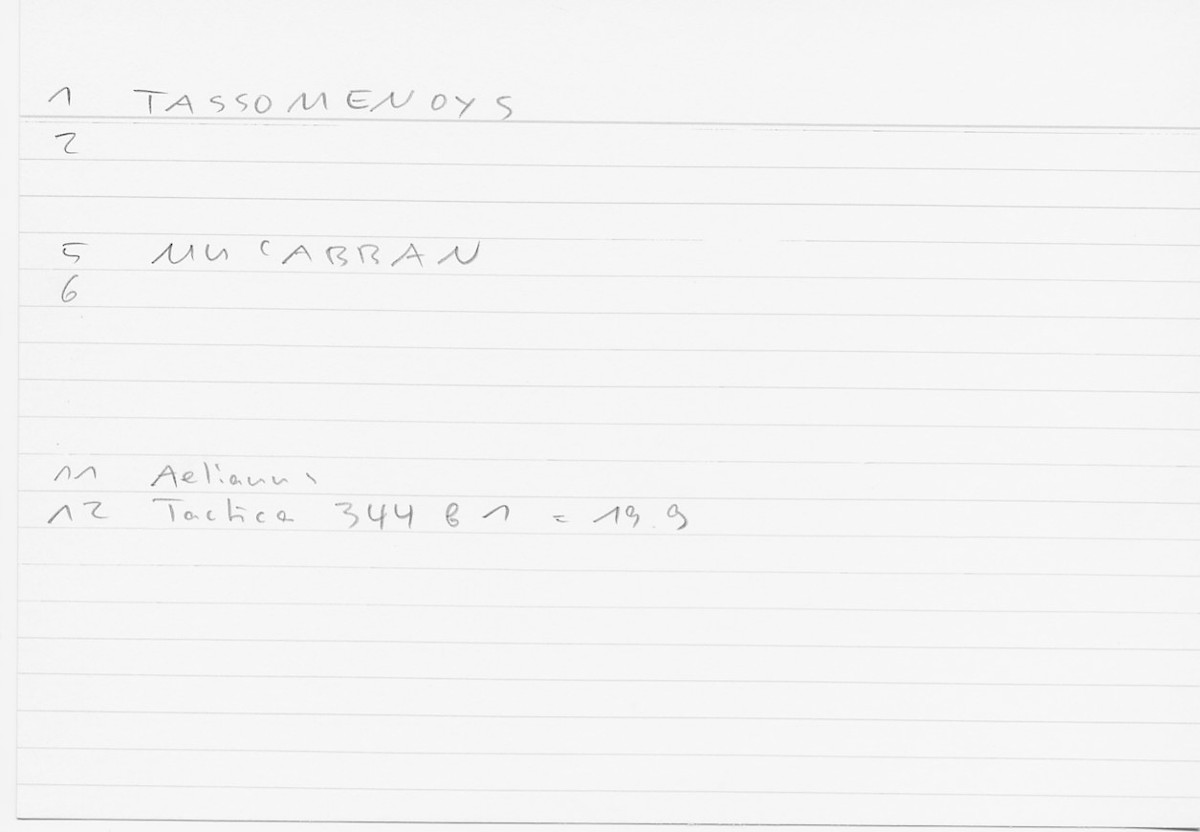 1 TASSOMENOYS
2
5 MUCABBAN
6
11 Aelianus
12 Tactica 344 b 1 = 19.9